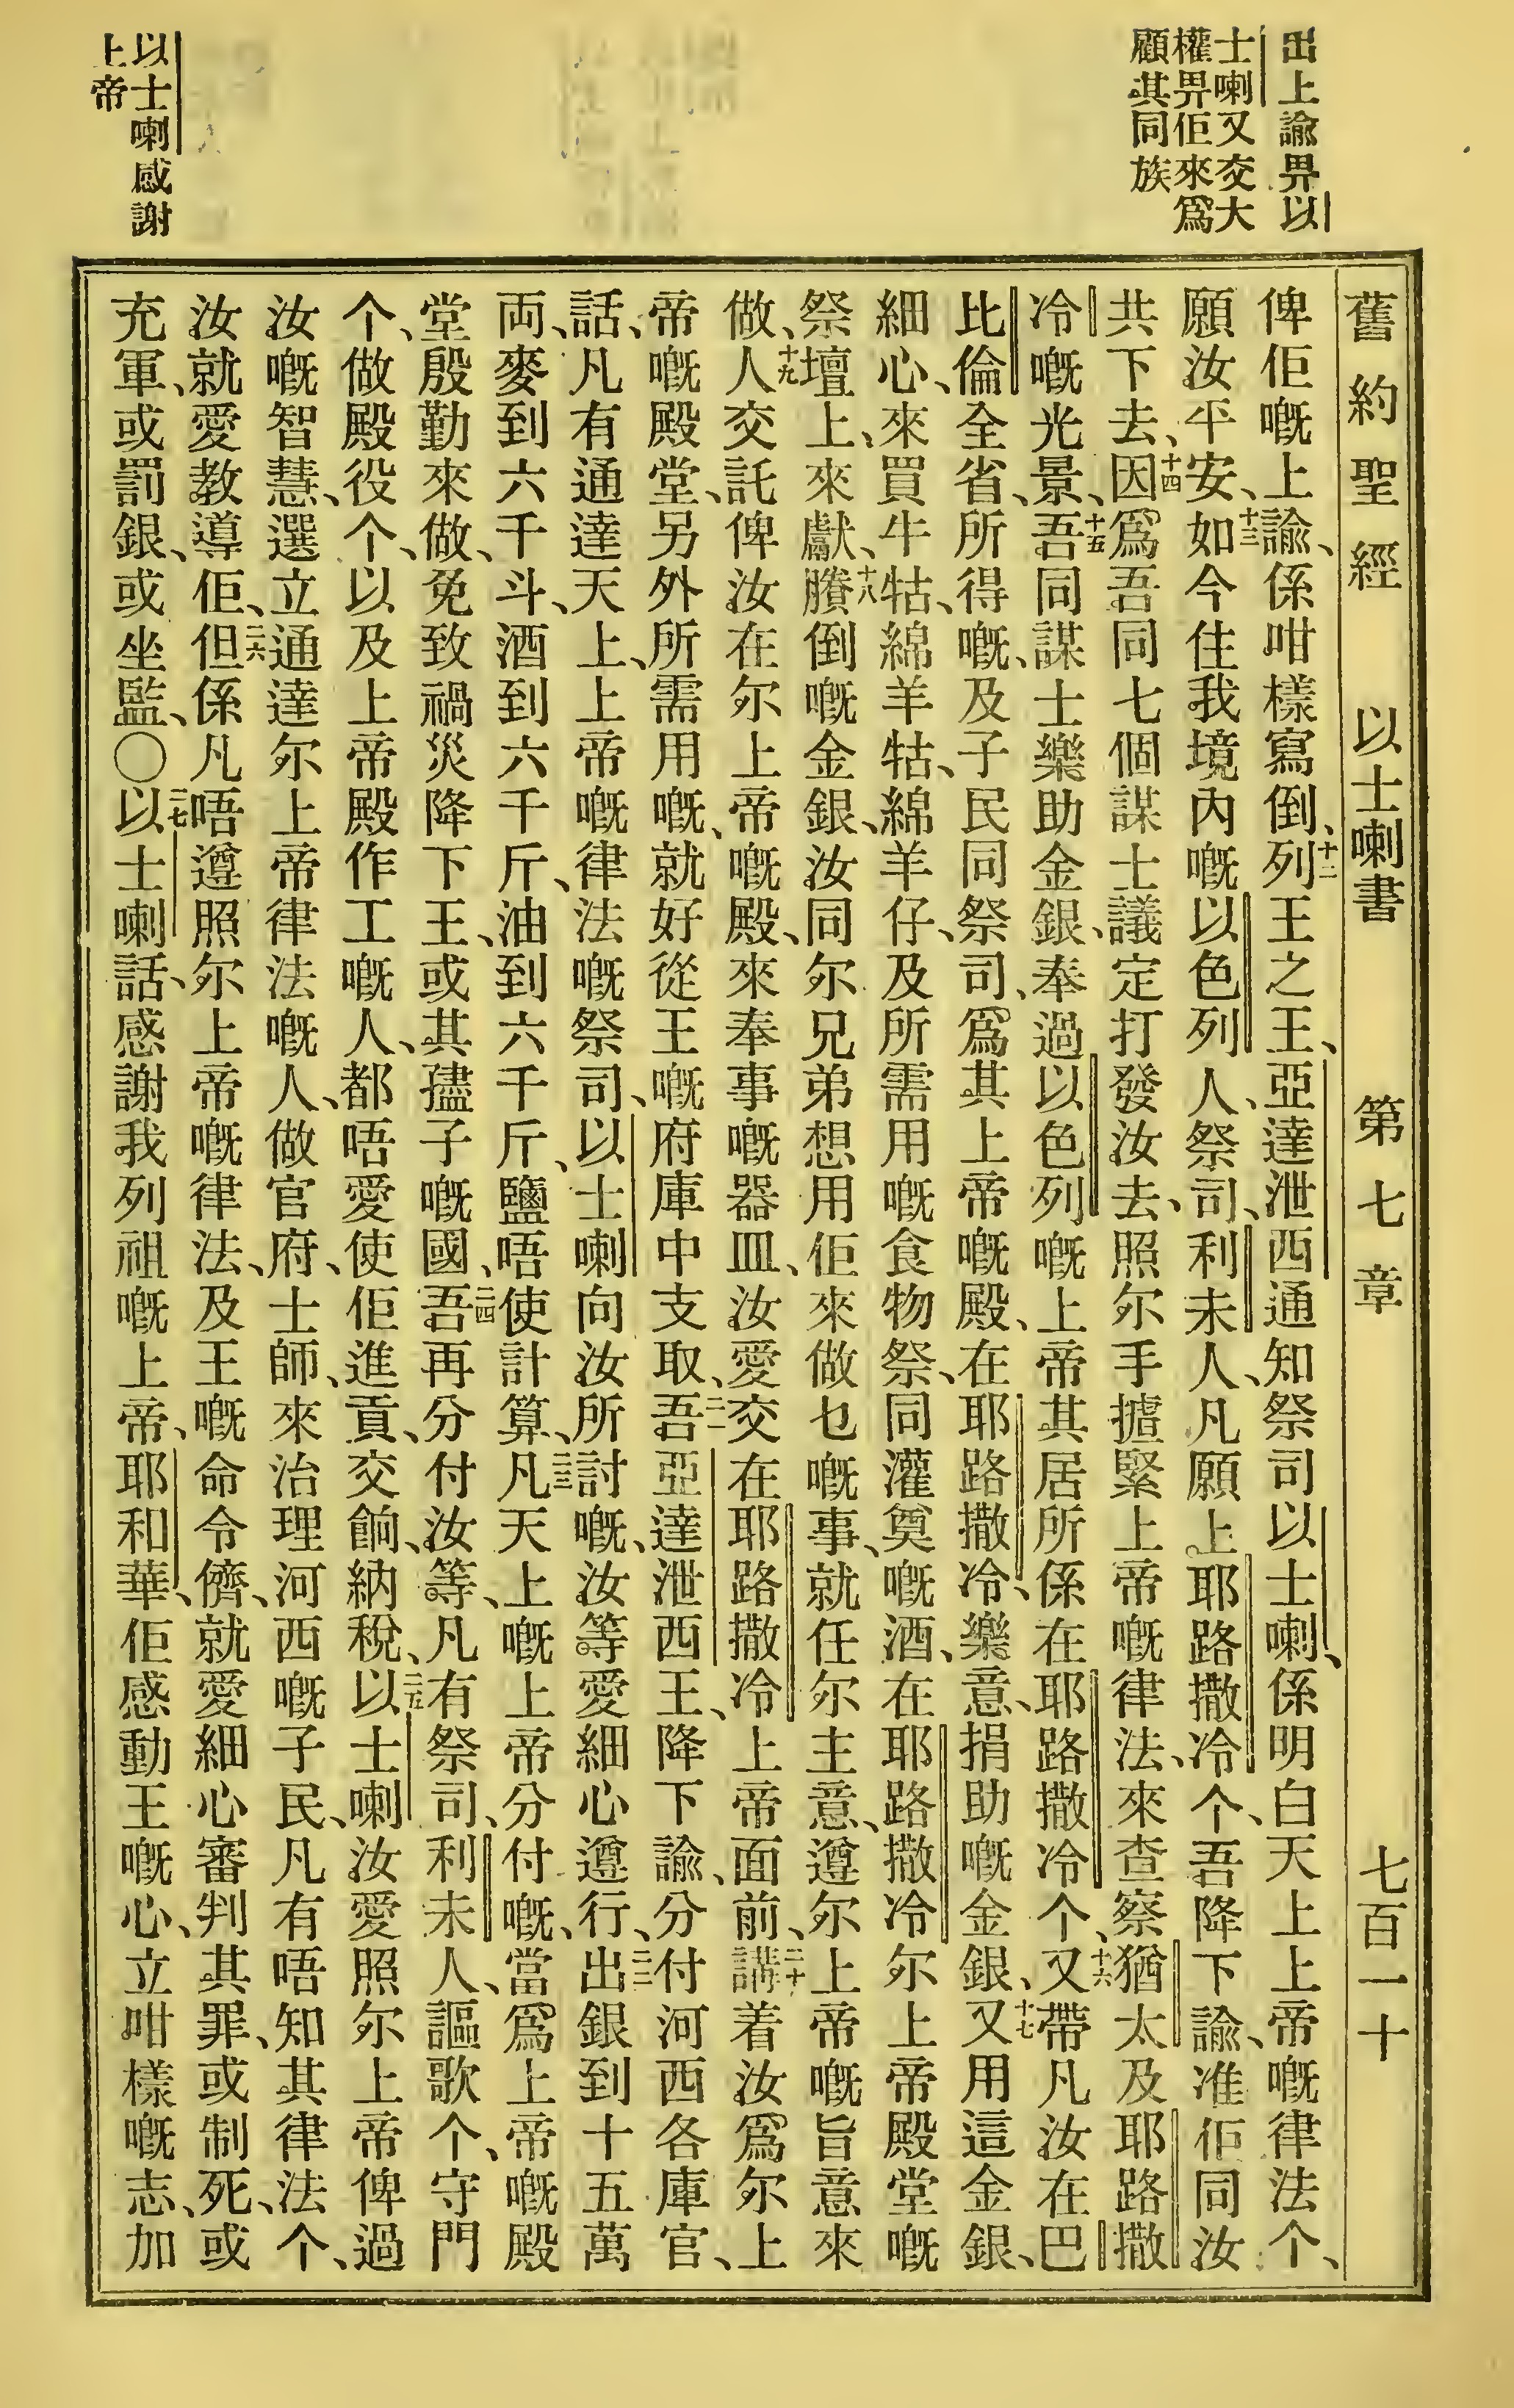 出上諭畀以
士喇又交大
權畀佢來爲
顧其同族
以士喇感謝
上帝
舊約聖經 以士喇書 第七章 七百一十
俾佢嘅上諭、係咁樣寫倒、十二列王之王、亞達泄西通知祭司以士喇、係明白天上上帝嘅律法个、
願汝平安、十三如今住我境內嘅以色列人、祭司、利未人、凡願上耶路撒冷个、吾降下諭、准佢同汝
共下去、十四因爲吾同七個謀士議定打發汝去、照尔手揸緊上帝嘅律法、來查察猶太及耶路撒
冷嘅光景、十五吾同謀士樂助金銀、奉過以色列嘅上帝其居所係在耶路撒冷个、十六又帶凡汝在巴
比倫全省、所得嘅、及子民同祭司、爲其上帝嘅殿、在耶路撒冷、樂意、捐助嘅金銀、十七又用這金銀、
細心、來買牛牯、綿羊牯、綿羊仔、及所需用嘅食物祭、同灌奠嘅酒、在耶路撒冷尔上帝殿堂嘅
祭壇上、來獻、十八賸倒嘅金銀、汝同尔兄弟想用佢來做乜嘅事、就任尔主意、遵尔上帝嘅旨意來
做、十九人交託俾汝在尔上帝嘅殿、來奉事嘅器皿、汝愛交在耶路撒冷上帝面前、二十講着汝爲尔上
帝嘅殿堂、另外所需用嘅、就好從王嘅府庫中支取、二一吾亞達泄西王、降下諭、分付河西各庫官、
話、凡有通達天上、上帝嘅律法嘅祭司、以士喇向汝所討嘅、汝等愛細心遵行、二二出銀到十五萬
両、麥到六千斗、酒到六千斤、油到六千斤、鹽唔使計算、二三凡天上嘅上帝分付嘅、當爲上帝嘅殿
堂殷勤來做、免致禍災降下王、或其孻子嘅國、二四吾再分付汝等、凡有祭司、利未人、謳歌个、守門
个、做殿役个、以及上帝殿作工嘅人、都唔愛使佢進貢、交餉、納稅、二五以士喇汝愛照尔上帝俾過
汝嘅智慧、選立通達尔上帝律法嘅人、做官府、士師、來治理河西嘅子民、凡有唔知其律法个、
汝就愛教導佢、二六但係凡唔遵照尔上帝嘅律法、及王嘅命令儕、就愛細心審判其罪、或制死、或
充軍、或罰銀、或坐監、〇二七以士喇話、感謝我列祖嘅上帝、耶和華、佢感動王嘅心、立咁樣嘅志、加